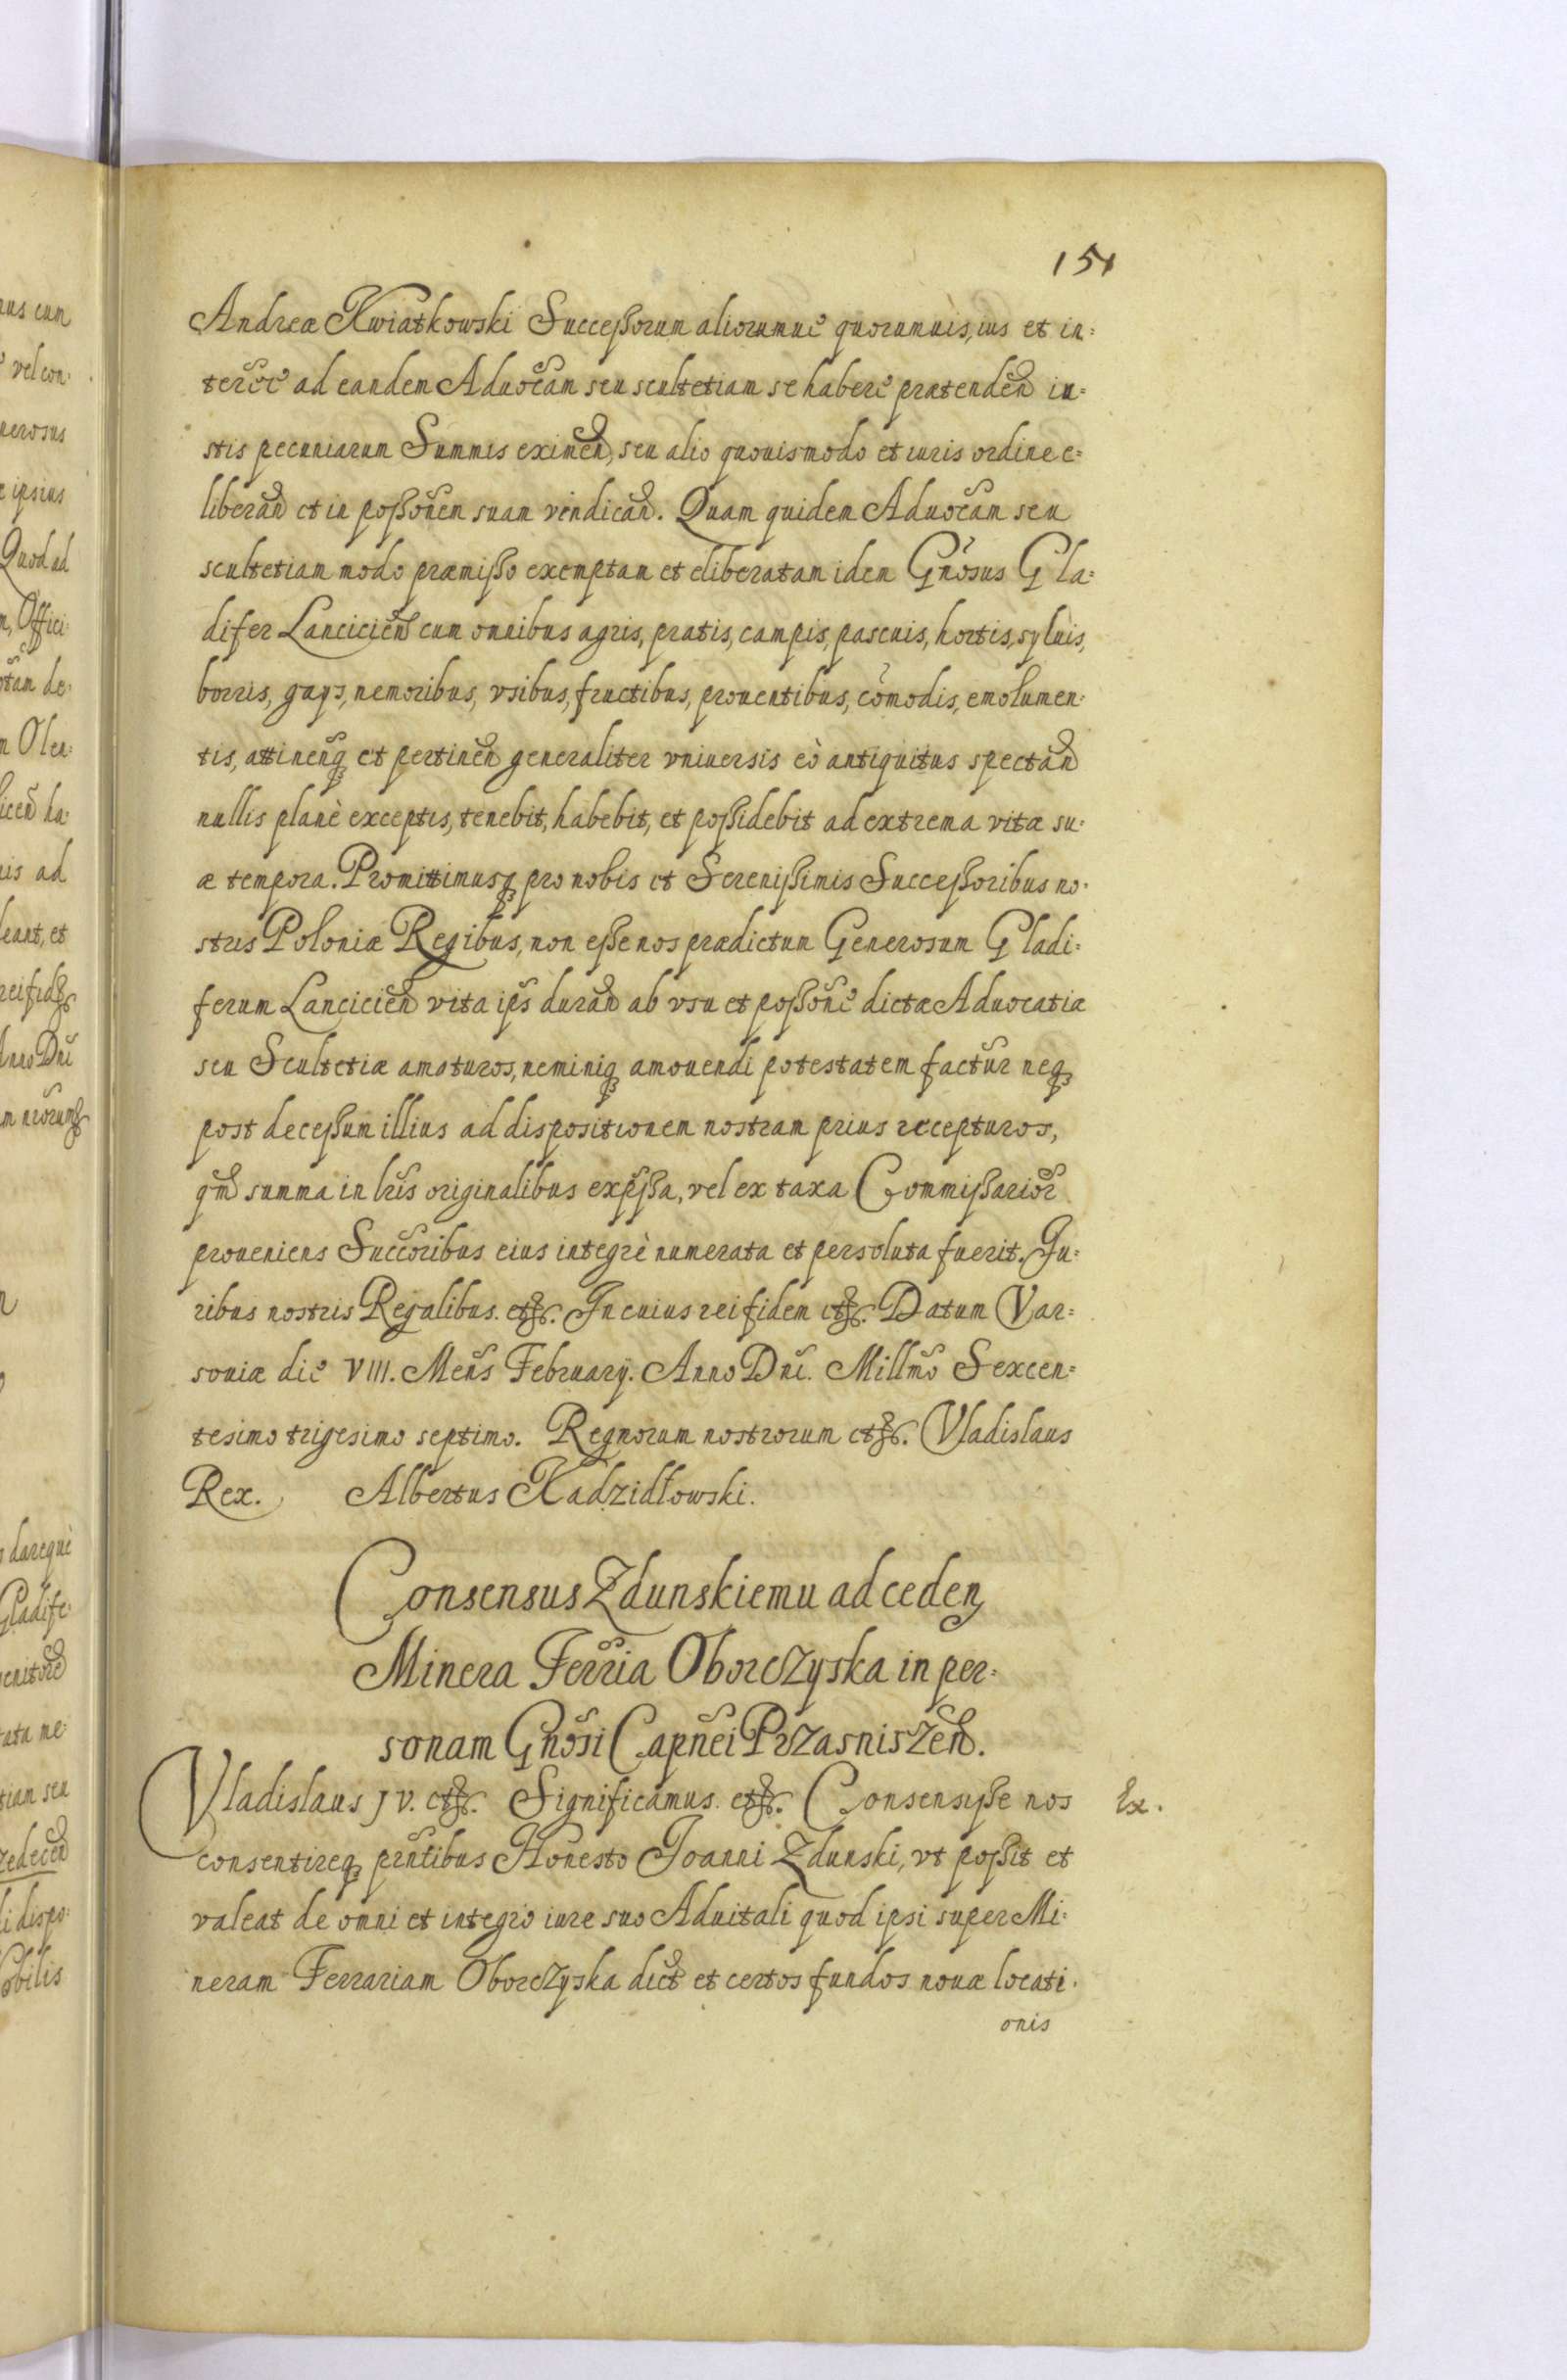 151
Andreæ Kwiatkowski Successorum aliorumue quorumuis, ius et in=
terẽe ad eandem Aduocãm seu scultetiam se habere prætendeñ iu=
stis pecuniarum Summis eximeñ, seu alio quouismodo et iuris ordine e=
liberañ et in possoñem suam vindicañ. Quam quidem Aduocãm seu
scultetiam modo præmisso exemptam et eliberatam idem Gñosus Gla=
difer Lancicieñ cum omnibus agris, pratis, campis, pascuis, hortis, syluis,
borris, gays, nemoribus, vsibus, fructibus, prouentibus, cõmodis, emolumen=
tis, attineñq et pertineñ generaliter vniuersis eò antiquitus spectañ
nullis planè exceptis, tenebit, habebit, et possidebit ad extrema vitæ su=
æ tempora. Promittimusq pro nobis et Serenissimis Successoribus no=
stris Poloniæ Regibus, non esse nos prædictum Generosum Gladi=
ferum Lancicieñ vita ips̃ durañ ab vsu et possoñe dictæ Aduocatiæ
seu Scultetiæ amoturos, neminiq amouendi potestatem factur̃ neq
post decessum illius ad dispositionem nostram prius recepturos,
qm̃ summa in lr̃is originalibus exp̃ssa, vel ex taxa Commissarior̃
proueniens Succõribus eius integrè numerata et persoluta fuerit. Iu=
ribus nostris Regalibus. etc. In cuius rei fidem etc. Datum Var=
souiæ die VIII. Meñs February. Anno Dñi. Millm̃o Sexcen=
tesimo trigesimo septimo. Regnorum nostrorum etc. Vladislaus
Rex. Albertus Kadzidłowski.
Consensus Zdunskiemu ad ceden
Minera Ferrĩa Oborczyska in per=
sonam Gñosi Capñei Przasniszeñ.
Vladislaus IV. etc. Significamus. etc. Consensisse nos
Ex.
consentireq pr̃ntibus Honesto Joanni Zdunski, vt possit et
valeat de omni et integro iure suo Aduitali quod ipsi super Mi=
neram Ferrariam Oborczyska dict̃ et certos fundos nouæ locati=
onis